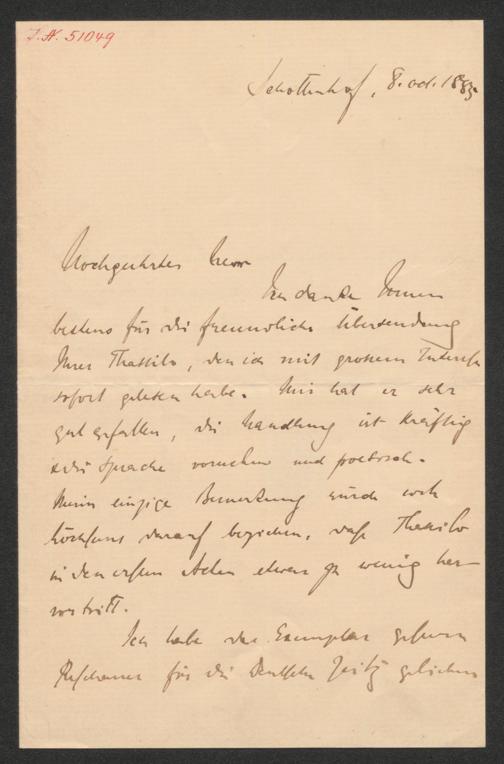 J.N. 51049
Schottenhof, 8. oct. 1883
Hochgeehrter Herr
Ich danke Ihnen
bestens für die freundliche Übersendung
Ihres Thassilo, den ich mit grossem Interesse
sofort gelesen habe. Mir hat er sehr
gut gefallen, die Handlung ist kräftig
die Sprache vornehm und poetisch.
Meine einzige Bemerkung würde sich
höchstens darauf beziehen, daß Thassilo
in den ersten Acten etwas zu wenig her-
vortritt.
Ich habe das Exemplar gestern
für die Deutsche Zeitg geliehen